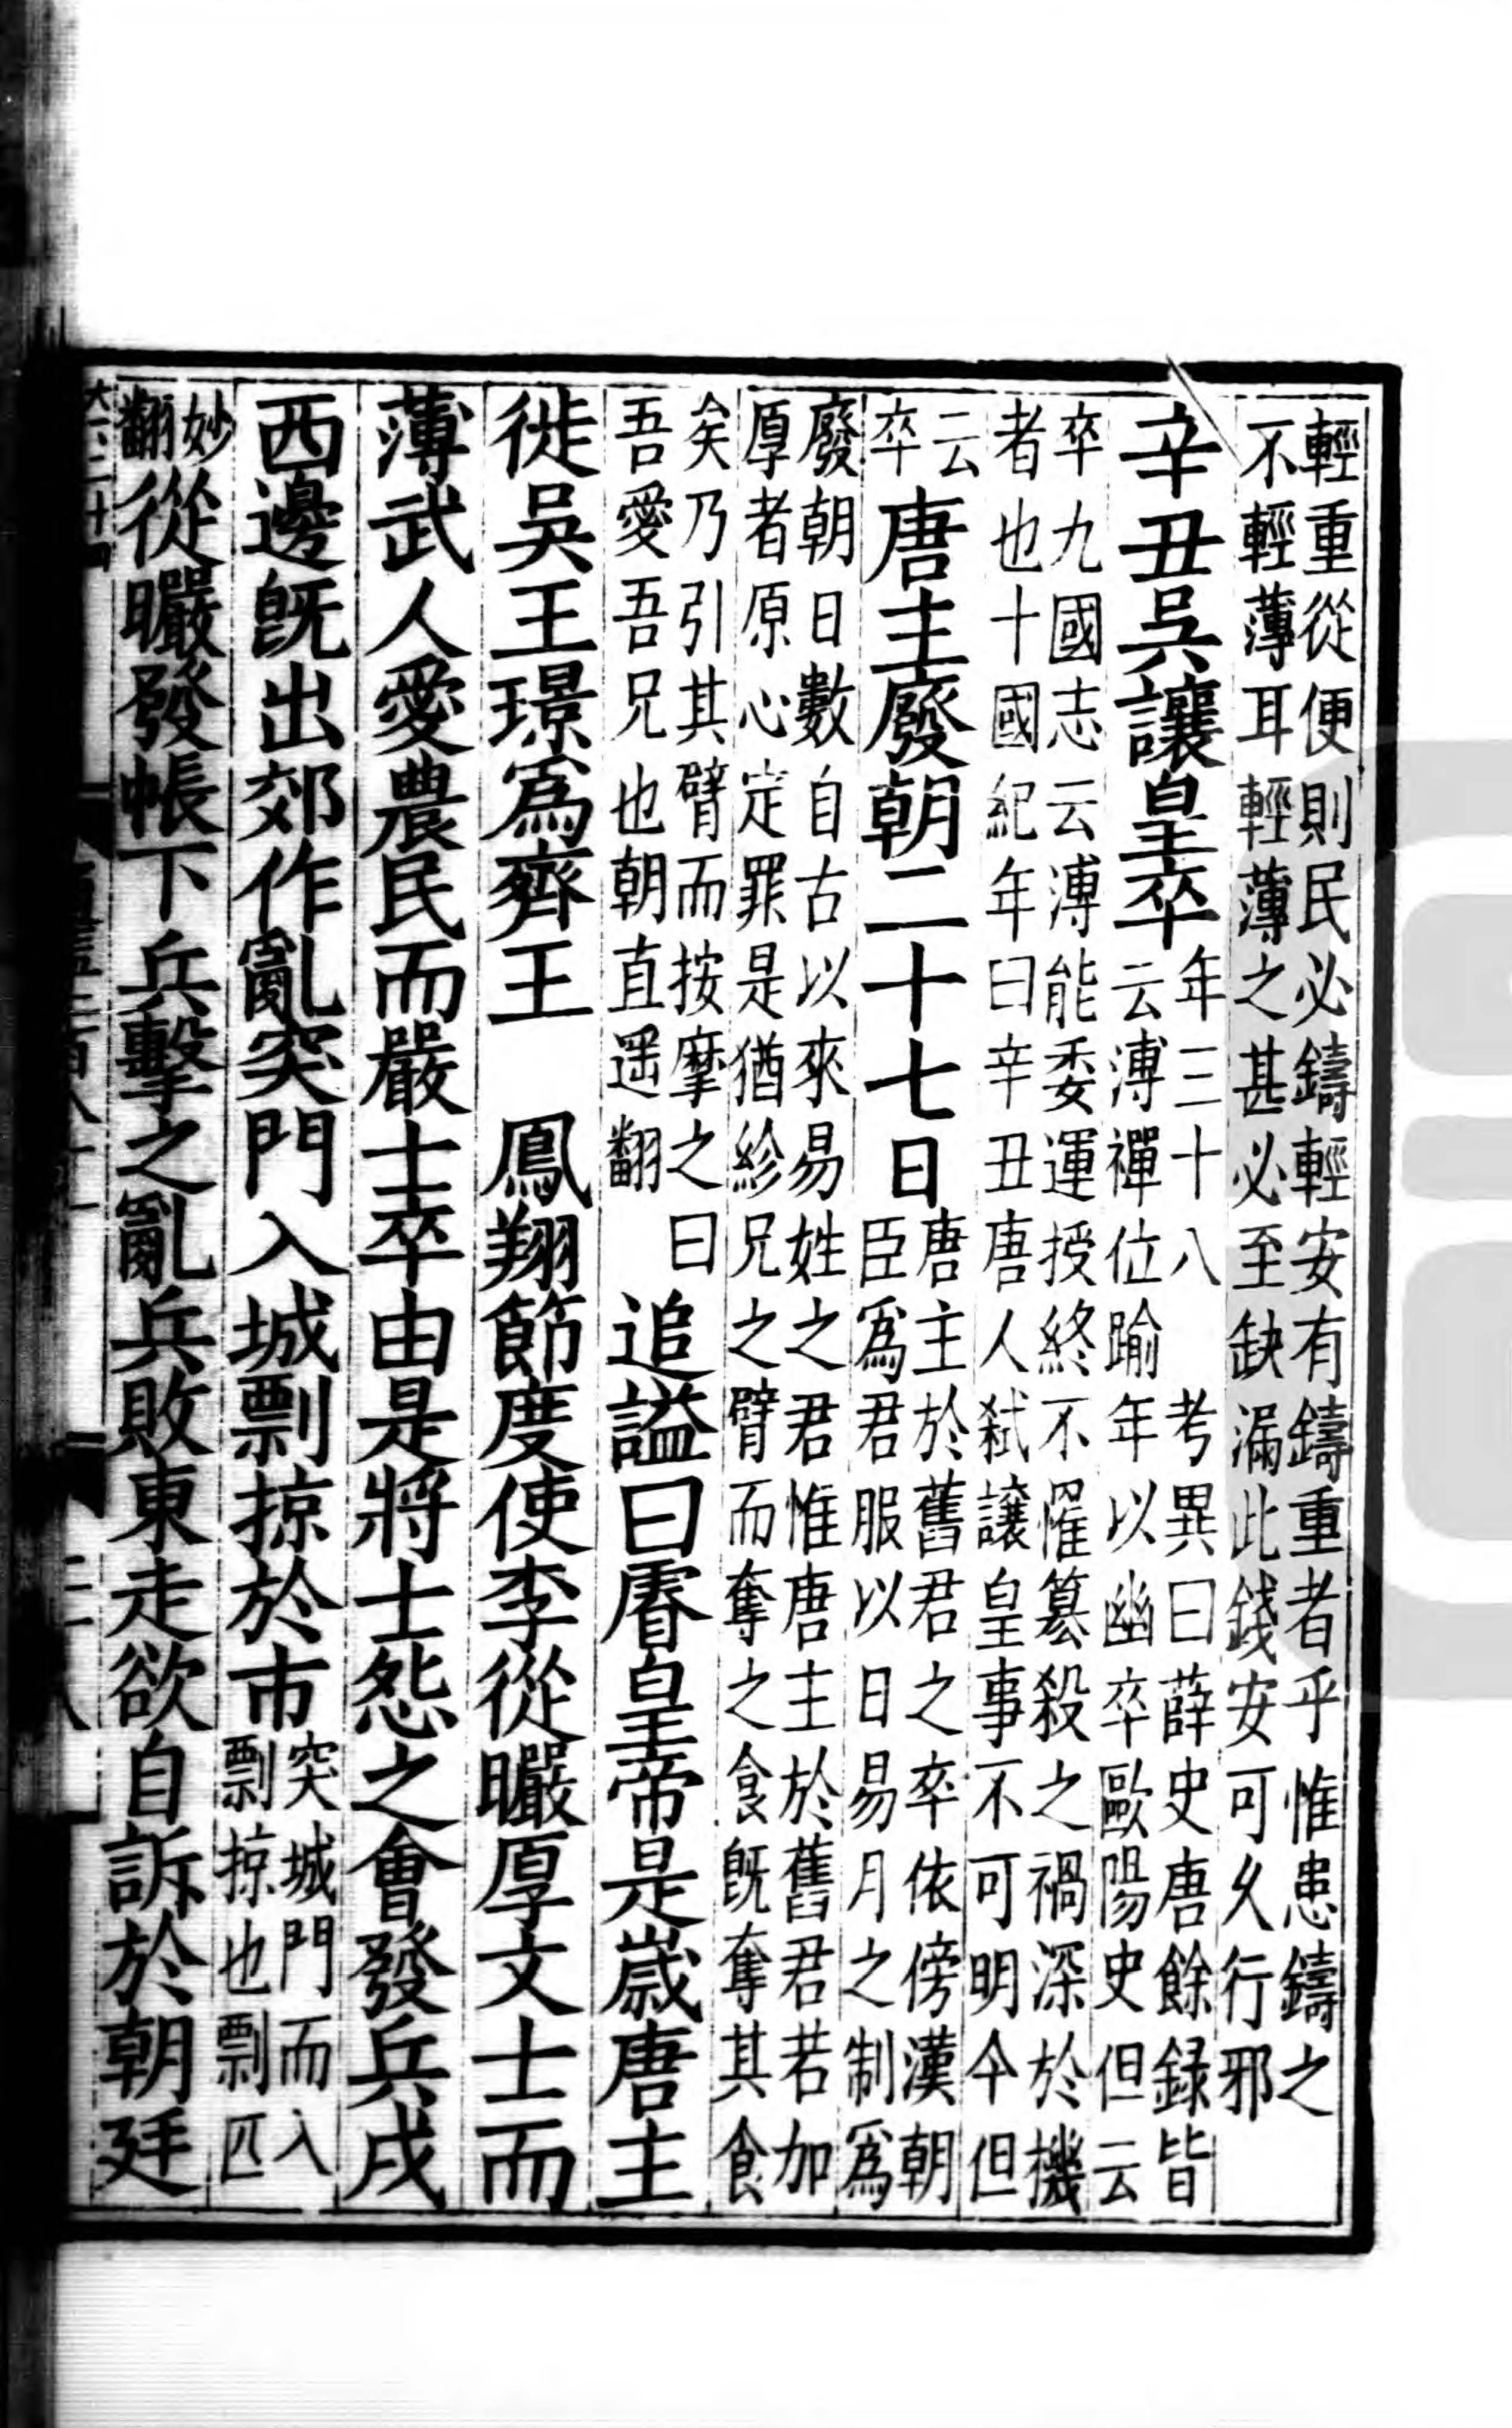 輕重從便則民必鑄輕安有鑄重者乎惟患鑄之
不輕薄耳輕薄之甚必至缺漏此錢安可久行邪
辛丑吳讓皇卒年三十八　考異曰薛史唐餘録皆
云溥禪位踰年以幽卒歐陽史但云
卒九國志云溥能委運授終不罹簒殺之禍深於機
者也十國紀年曰辛丑唐人弑讓皇事不可明今但
云
卒唐主廢朝二十七日唐主於舊君之卒依傍漢朝
臣爲君服以日易月之制爲
廢朝日數自古以來易姓之君惟唐主於舊君若加
厚者原心定罪是猶紾兄之臂而奪之食旣奪其食
矣乃引其臂而按摩之曰
吾愛吾兄也朝直遥翻追謚曰睿皇帝是歲唐主
徙吳王璟爲齊王　鳳翔節度使李從曮厚文士而
薄武人愛農民而嚴士卒由是將士怨之會發兵戍
西邊旣出郊作亂突門入城剽掠於市突城門而入
剽掠也剽匹
妙
翻從曮發帳下兵擊之亂兵敗東走欲自訴於朝廷